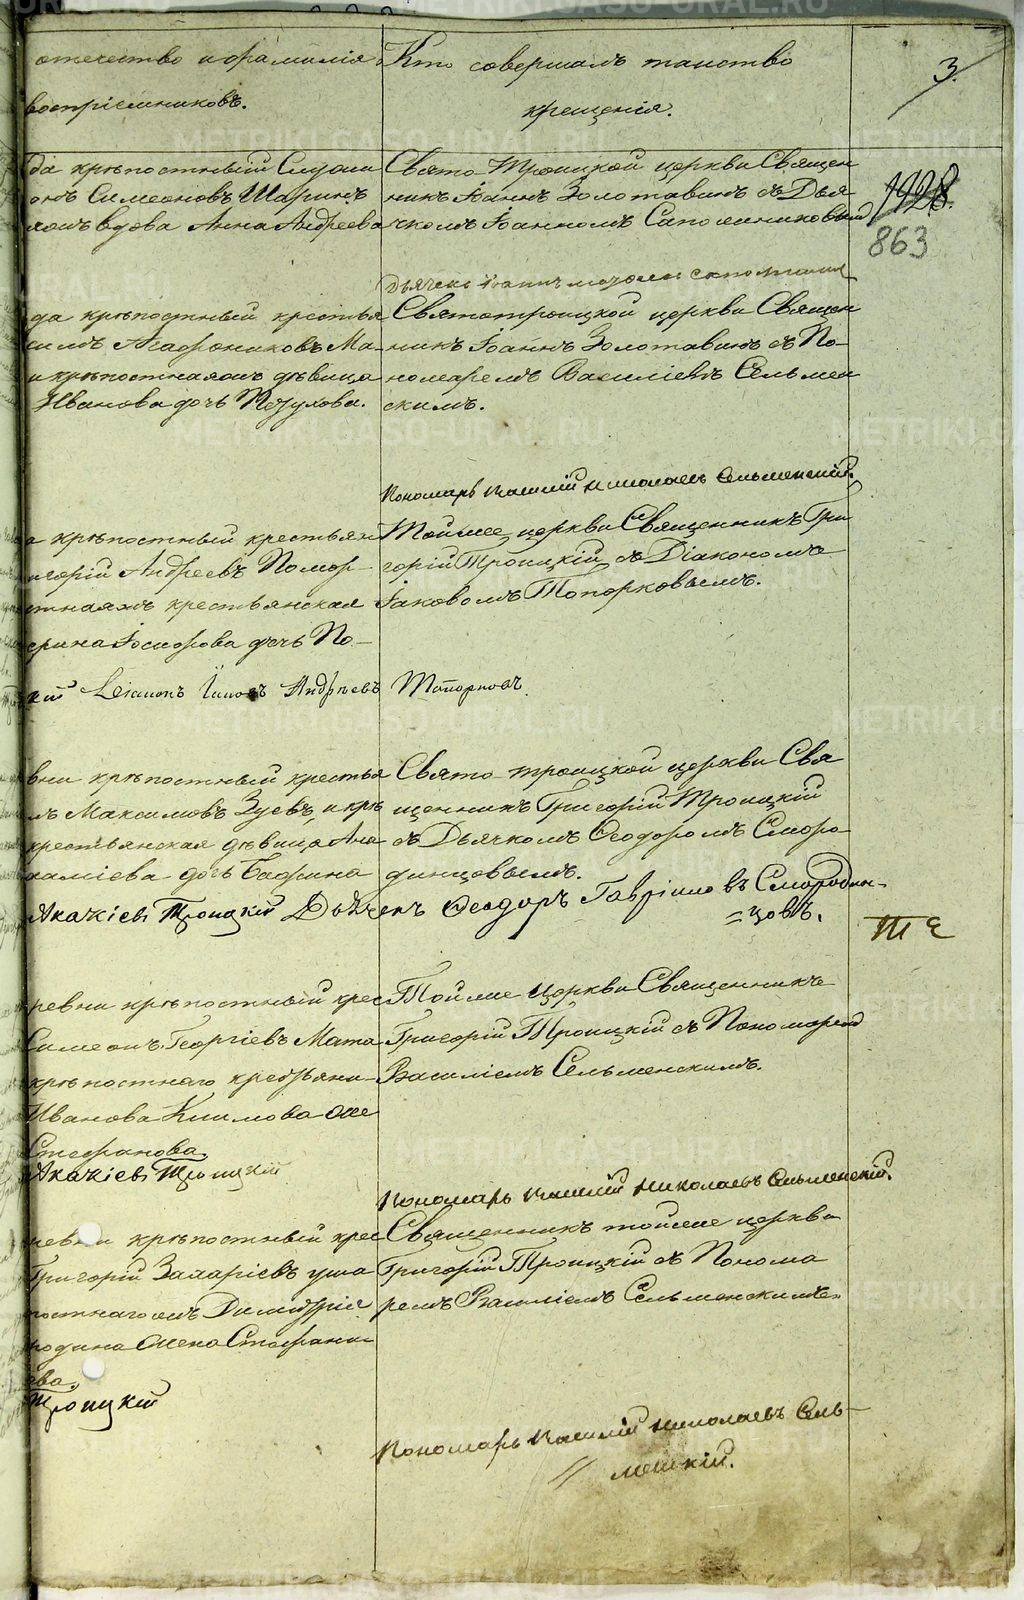 отечество и фамилія
воспріемниковъ.
Кто совершалъ таинство
крещенія.
3.
да крѣпостный
онъ Симеоновъ Шаринъ
вдова Анна Андреева
Свято Троицкой церкви Священ
никъ Іоаннъ Золотавинъ съ Дья
чкомъ Іоанномъ Сапожниковымъ
1928.
863
дьячекъ Іоаннъ
да крѣпостный крестья
Агафониковъ Ма-
и крѣпостная дѣвица
Иванова дочь Пѣтухова.
Святотроицкой церкви Священ
никъ Іоаннъ Золотавинъ съ По-
номаремъ Василіемъ Сельмен
скимъ.
Пономарь Василій Николаевъ Сельменскій.
а крѣпостный крестьян
игорій Андреевъ Помор
крестьянская
ерина Іосифова дочь По-
Тойже церкви Священникъ Гри
горій Троицкій съ Діакономъ
Іаковомъ Топорковымъ.
кій Діаконъ Іаковъ Андреевъ Топорковъ.
вни крѣпостный крестья
лъ Максимовъ Зуевъ, и крѣ
крестьянская дѣвица Ана
дочь
Акакіевъ Троицкій
Свято троицкой церкви Свя
щенникъ Григорій Троицкій
съ Дьячкомъ Ѳеодоромъ Сморо
динцовымъ.
Дьячекъ Ѳеодоръ Гавріиловъ Смородин-
=цовъ.
ревни крѣпостный крес
Симеонъ Георгіевъ Мата
крѣпостнаго крестьяни
Иванова Климова же
Стефанова.
Акакіевъ Троицкій
Тойже Церкви Священникъ
Григорій Троицкій съ Пономаремъ
Василіемъ Сельменскимъ.
Пономарь Василій Николаевъ Сельменскій.
ревни крѣпостный крес
Григорій Захаріевъ уша
постнаго Димитрія
родина жена Стефани
ева.
Троицкій
Священникъ тойже церкви
Григорій Троицкій съ Понома
ремъ Василіемъ Сельменскимъ.
Пономарь Василій Николаевъ Сель-
менскій.